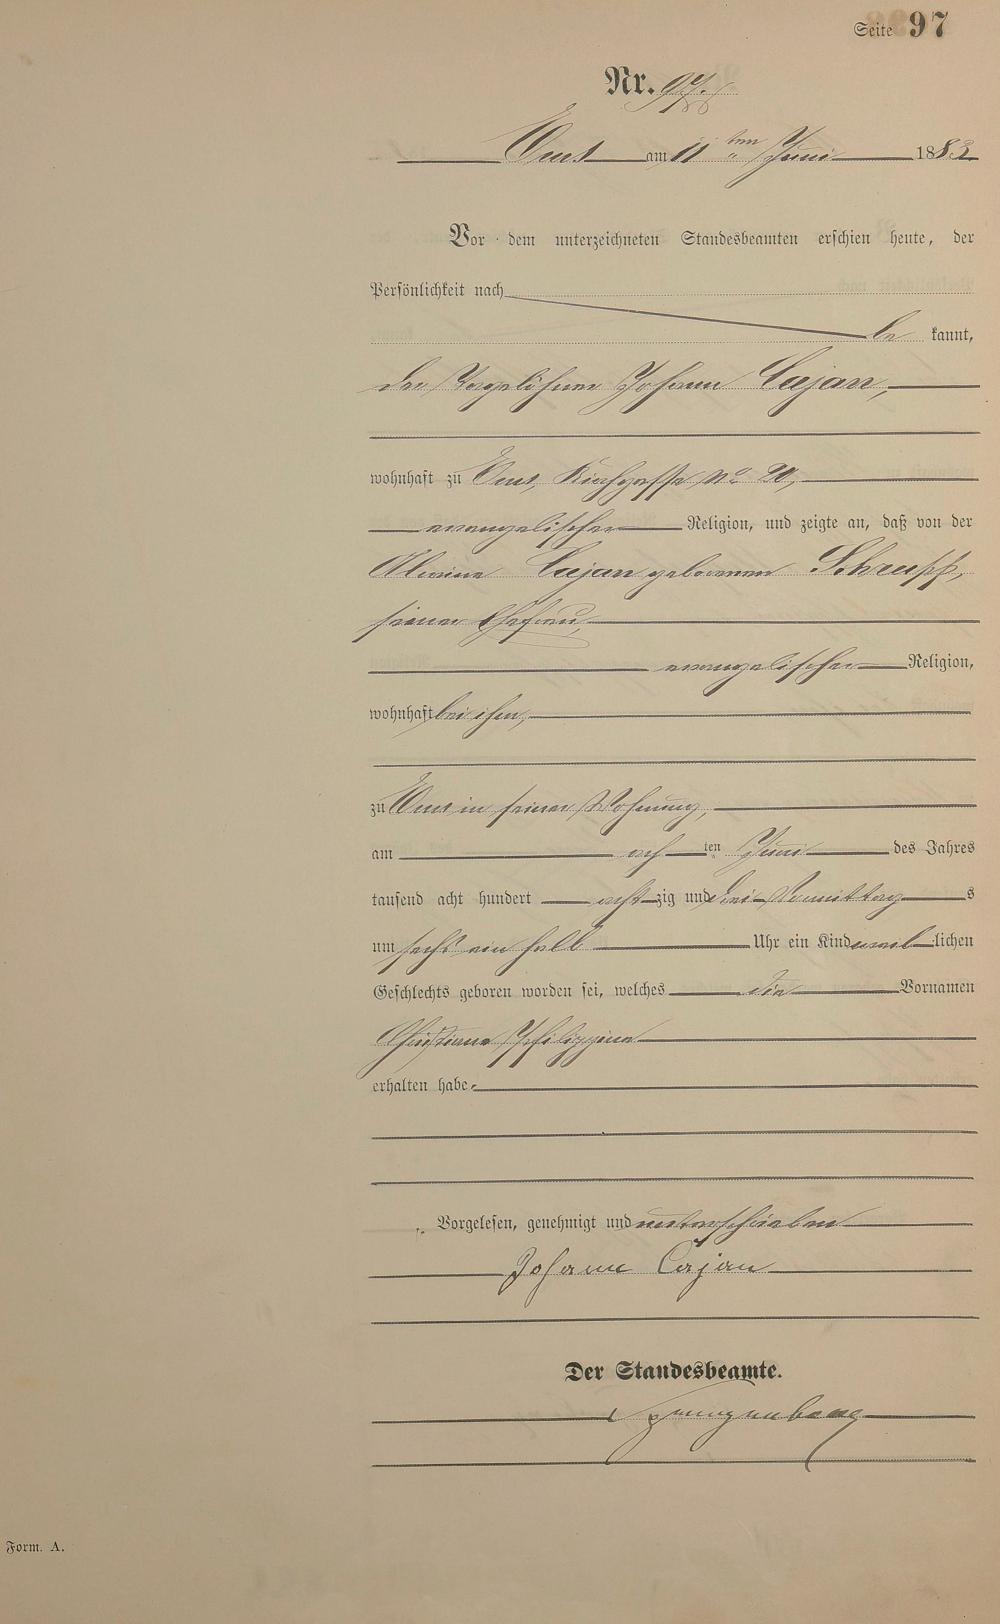 Seite 97
Nr. 97.
Ems am 11 ten Juni 1883
Vor dem unterzeichneten Standesbeamten erschien heute, der
Persönlichkeit nach
be kannt,
der Tagelöhner Johann Cajan,
wohnhaft zu Ems, Kirchgasse No 20,
evangelischer Religion, und zeigte an, daß von der
Cajan geborenen Schrupp,
seiner Ehefrau,
evangelischer Religion,
wohnhaft bei ihm,
zu Ems in seiner Wohnung,
am ach ten Juni des Jahres
tausend acht hundert acht zig und drei Vormittag s
um sechs ein halb Uhr ein Kind weib lichen
Geschlechts geboren worden sei, welches die Vornamen
Christiane Philippine
erhalten habe.
Vorgelesen, genehmigt und unterschrieben
Johann Cajan
Der Standesbeamte.
Form. A.